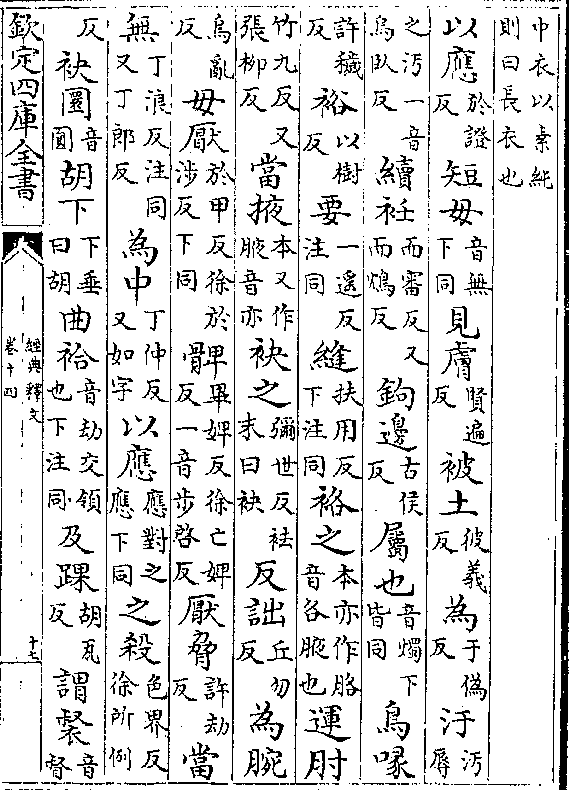 中衣以素純則曰長衣也
以應於證反短毋音無下同見膚賢遍反被土彼義反為于偽反汙汚辱
之汚一音烏臥反續衽而審反又而鴆反鉤邊古侯反屬也音燭下皆同鳥喙
許穢反裕以樹反要一遥反注同縫扶用反下注同袼之本亦作胳音各腋也運肘
竹九反又張柳反當掖本又作腋音亦袂之彌世反袪末曰袂反詘丘勿反為腕
烏亂反毋厭於甲反徐於涉反下同髀畢婢反徐亡婢反一音步啓反厭脅許劫反當
無丁浪反注同又丁郎反為中丁仲反又如字以應應對之應下同之殺色界反徐所例
反袂圜音圓胡下下垂曰胡曲袷音劫交領也下注同及踝胡瓦反謂裻音督
欽定四庫全書
經典釋文
卷十四
十七